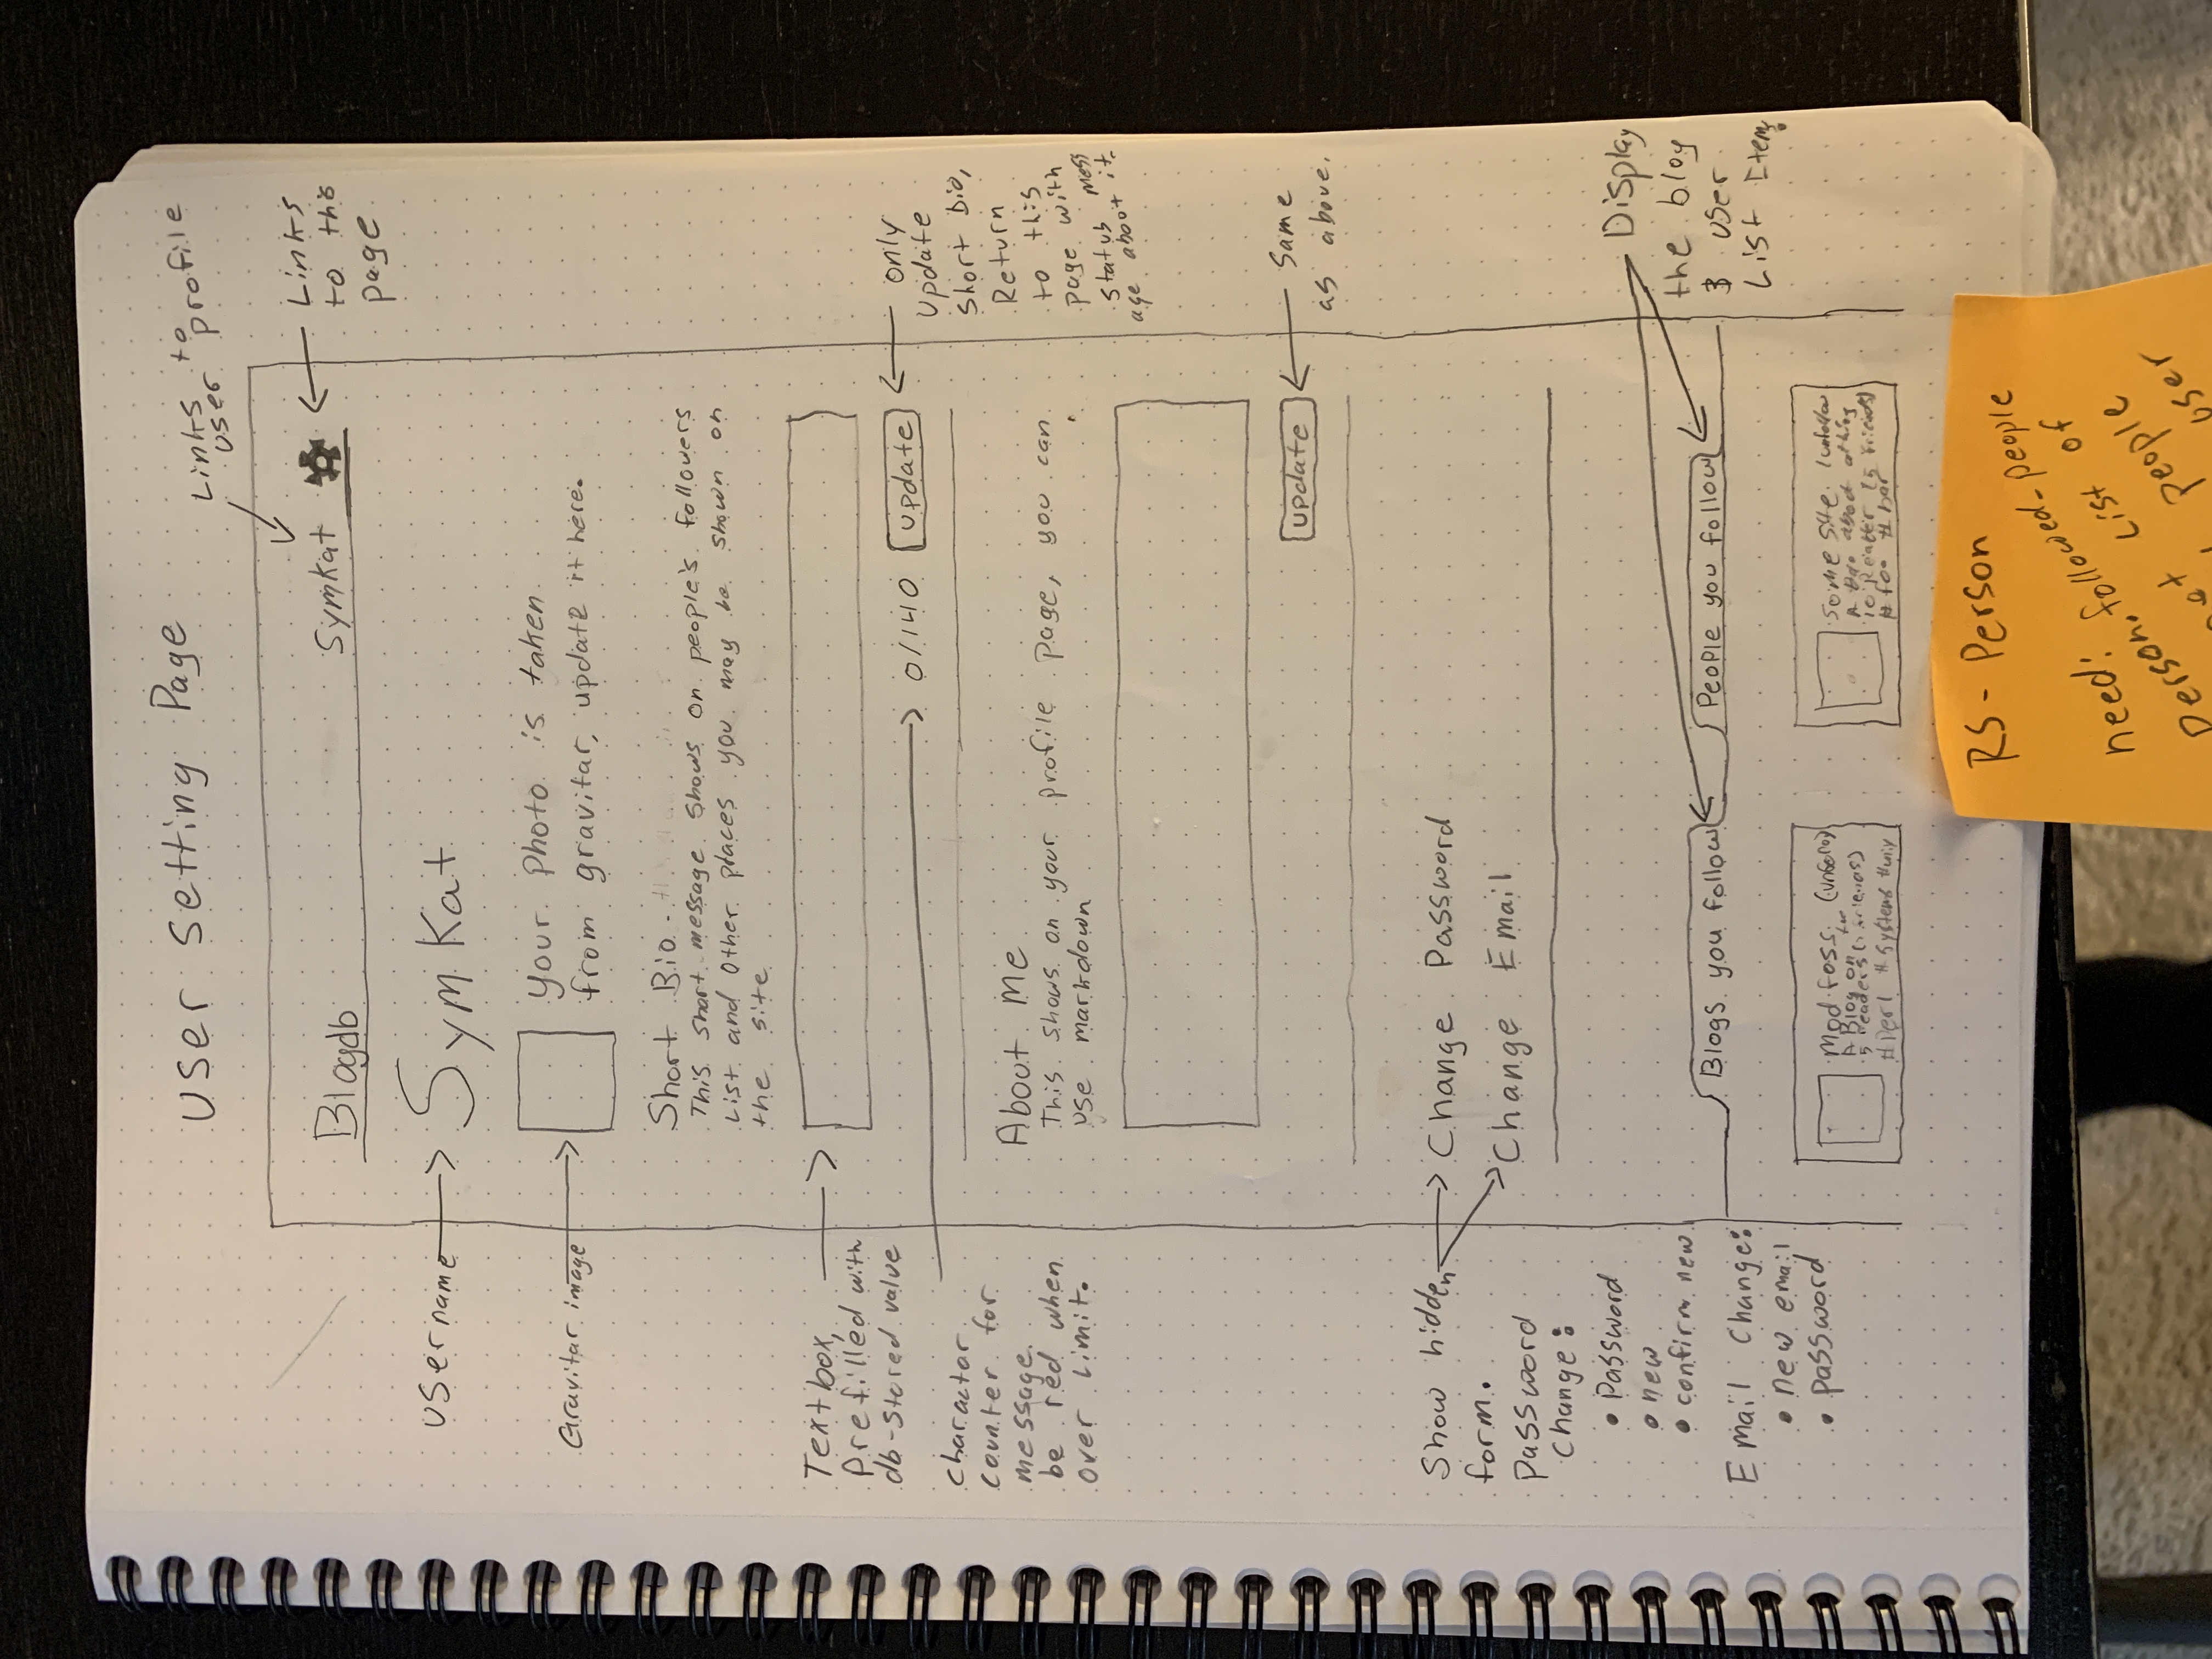 User Setting Page
Links to
user profile
Blogdb
SymKat
Links
to this
page
username
SymKat
Gravitar image
your photo is taken
from gravitar, update it here.
Short Bio
This short message shows on people's followers
List and other places you may be shown on
the site
Text box,
Prefilled with
db-stored value
0/140
update
only
update
short bio,
Return
to this
page with
status mess
age about it.
charactor
counter for
message.
be red when
over limit.
About Me
This shows on your profile page, you can
use markdown
update
Same
as above.
Show hidden
form.
Change Password
Change Email
Password
change:
• Password
• new
• confirm new
Email change:
• new email
• password
Blogs you follow
People you follow
Display
the blog
& user
List Items
Modfoss
A Blog on
#Perl #systems
Some Site
#foo #bar
RS-Person
need: followed-people
person, List of
people
user